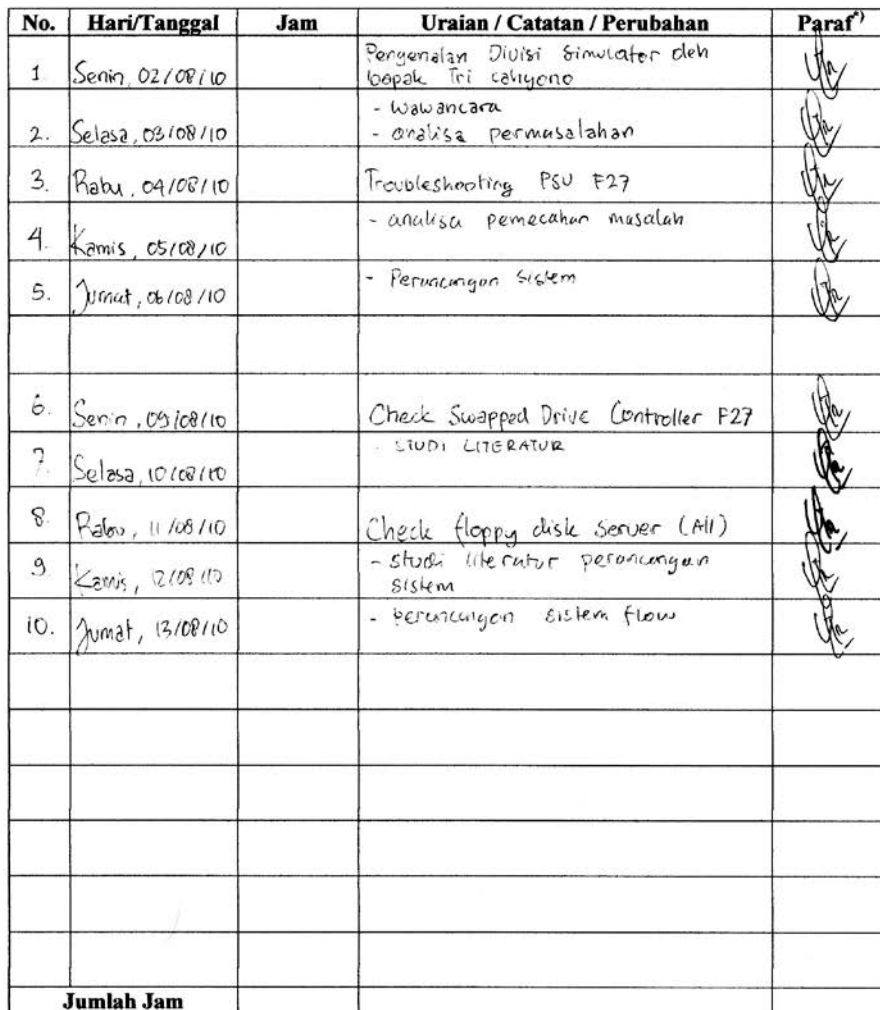 No. Hari/Tanggal Jam Uraian / Catatan / Perubahan Paraf*)
1. Senin, 02/08/10 Pengenalan Divisi Simulator oleh
bapak Tri cahyono
2. Selasa, 03/08/10 - wawancara
- analisa permasalahan
3. Rabu, 04/08/10 Troubleshooting PSU F27
4. Kamis, 05/08/10 - analisa pemecahan masalah
5. Jumat, 06/08/10 - Perancangan sistem
6. Senin, 09/08/10 Check Swapped Drive Controller F27
7. Selasa, 10/08/10 - STUDI LITERATUR
8. Rabu, 11/08/10 Check floppy disk server (All)
9. Kamis, 12/08/10 - studi literatur perancangan
sistem
10. Jumat, 13/08/10 - perancangan sistem flow
Jumlah Jam